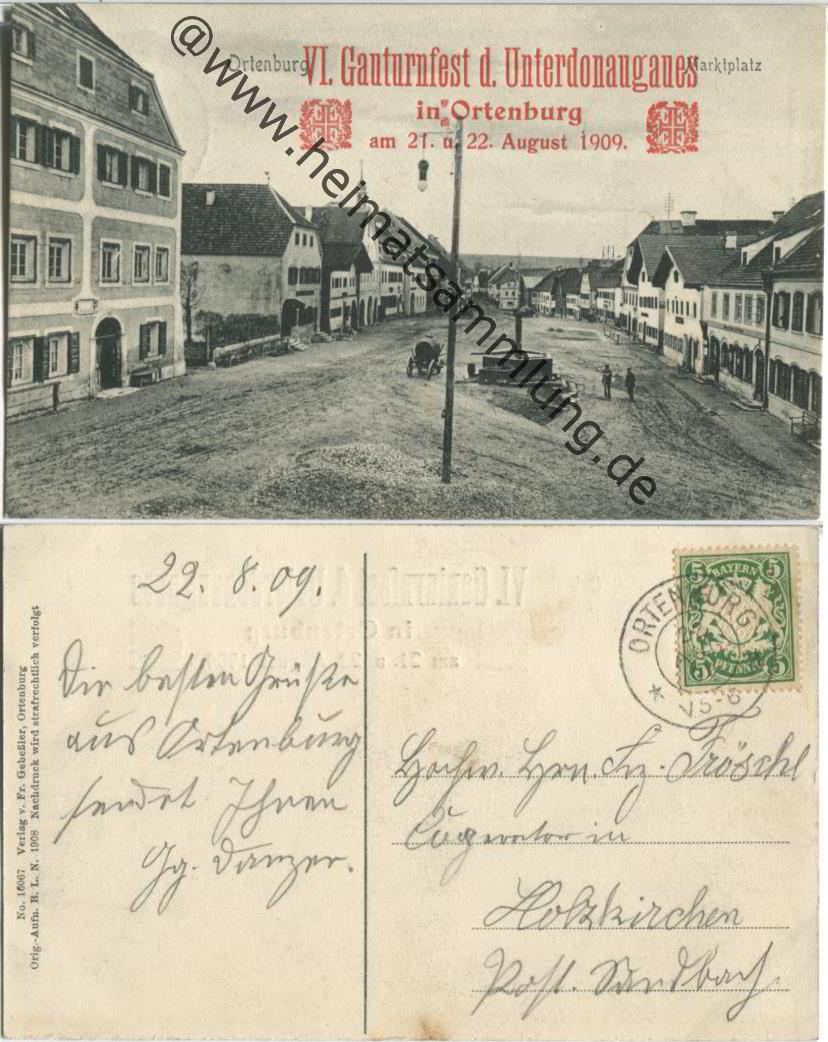 Ortenburg
Marktplatz
VI. Gauturnfest d. Unterdonaugaues
in Ortenburg
am 21. u. 22. August 1909.
@www.heimatsammlung.de
22. 8. 09.
Die besten Grüße
aus Ortenburg
sendet Ihnen
Gg. Danzer.
No. 15067 Verlag v. Fr. Gebeßler, Ortenburg
Orig.-Aufn. B. L. N. 1908 Nachdruck wird strafrechtlich verfolgt
5 BAYERN 5
5 PFENNIG 5
ORTENBURG
Hochw. Hrn. Fz. Fröschl
Cooperator in
Holzkirchen
Post. Sandbach.